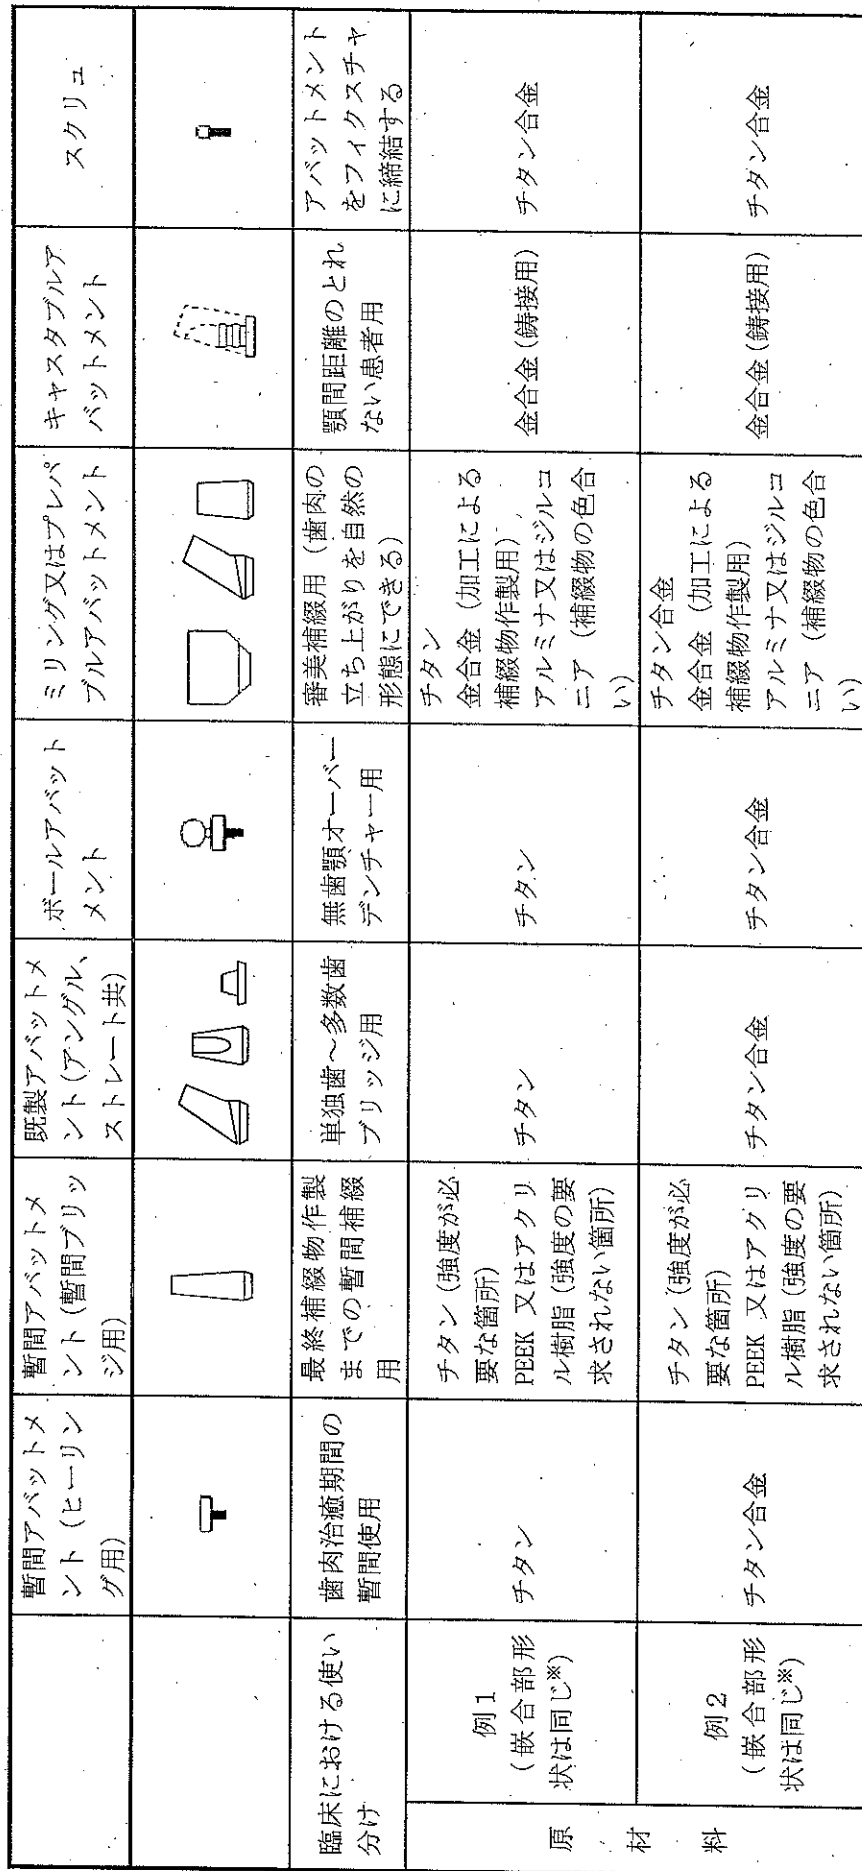 暫間アバットメ
ント(ヒーリン
グ用)
暫間アバットメ
ント(暫間ブリッ
ジ用)
既製アバットメ
ント(アングル、
ストレート共)
ボールアバット
メント
ミリング又はプレパ
ブルアバットメント
キャスタブルア
バットメント
スクリュ
臨床における使い
分け
歯肉治癒期間の
暫間使用
最終補綴物作製
までの暫間補綴
用
単独歯～多数歯
ブリッジ用
無歯顎オーバー
デンチャー用
審美補綴用（歯肉の
立ち上がりを自然の
形態にできる)
顎間距離のとれ
ない患者用
アバットメント
をフィクスチャ
に締結する
原材料
例1
(嵌合部形
状は同じ※)
チタン
チタン(強度が必
要な箇所)
PEEK 又はアクリ
ル樹脂(強度の要
求されない箇所)
チタン
チタン
チタン
金合金（加工による
補綴物作製用)
アルミナ又はジルコ
ニア（補綴物の色合
い)
金合金(鋳接用)
チタン合金
例2
(嵌合部形
状は同じ※)
チタン合金
チタン(強度が必
要な箇所)
PEEK 又はアクリ
ル樹脂(強度の要
求されない箇所)
チタン合金
チタン合金
チタン合金
金合金（加工による
補綴物作製用)
アルミナ又はジルコ
ニア（補綴物の色合
い)
金合金(鋳接用)
チタン合金